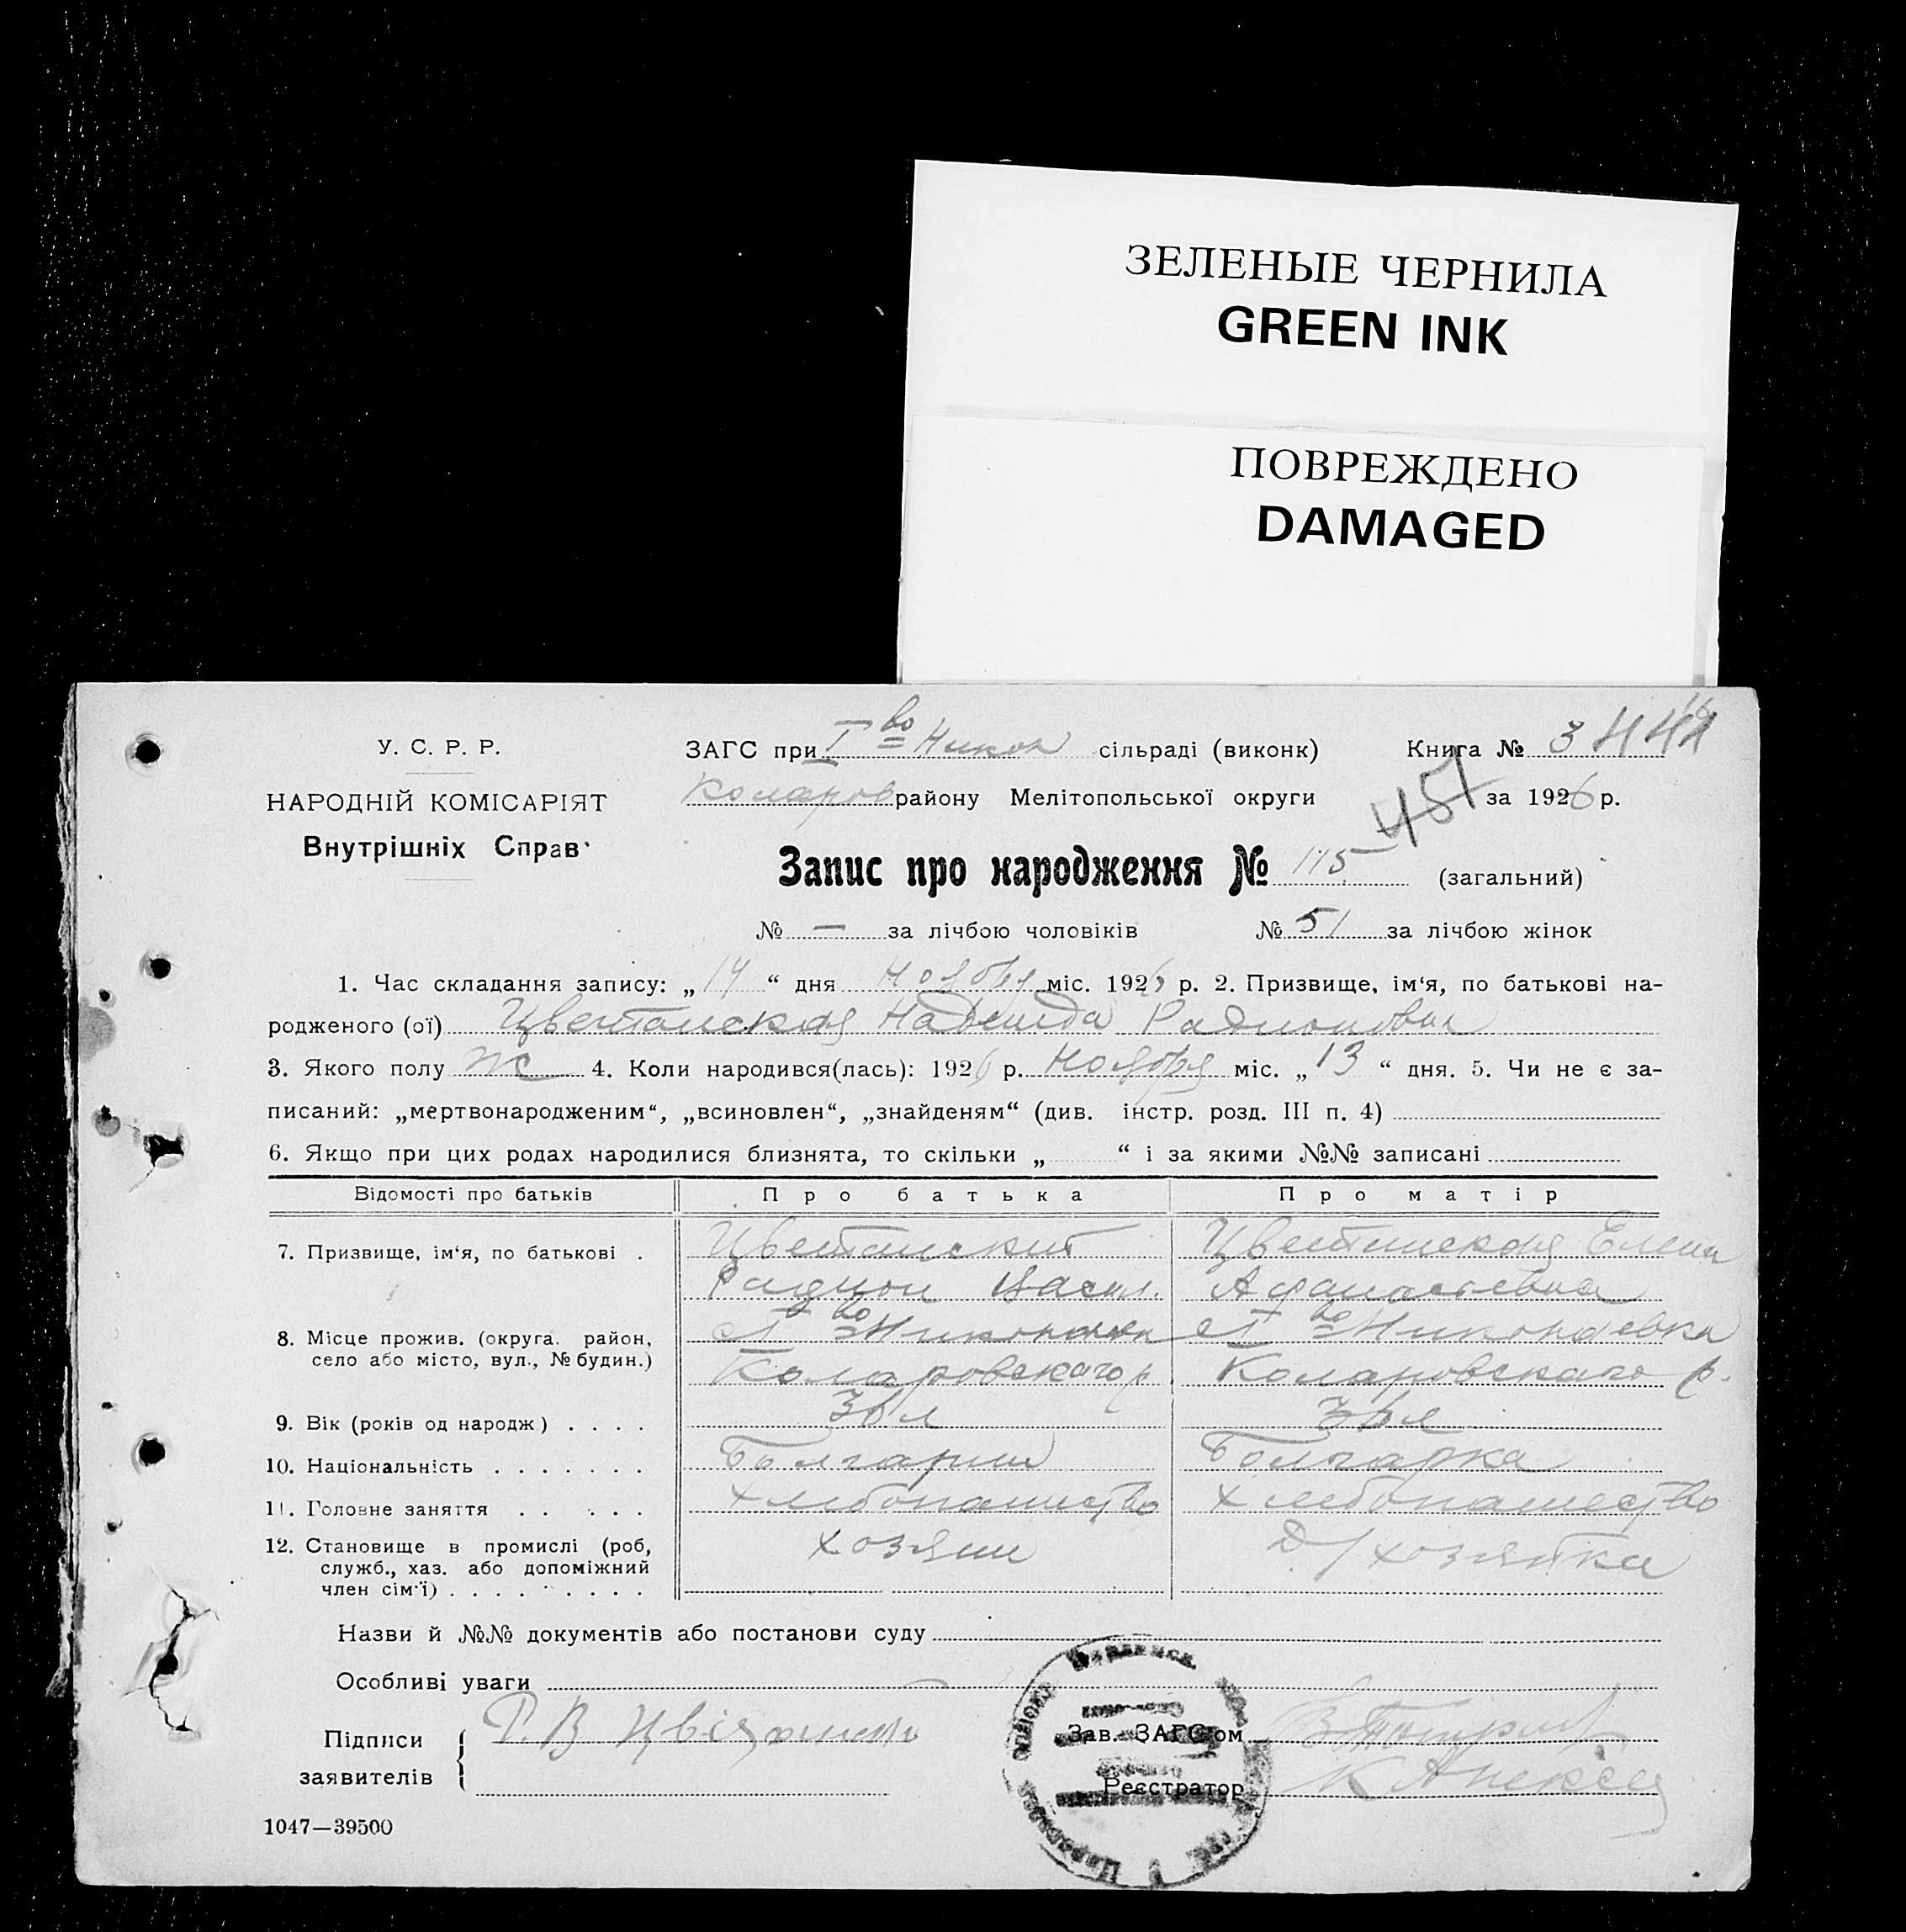 ЗЕЛЕНЫЕ ЧЕРНИЛА
GREEN INK
ПОВРЕЖДЕНО
DAMAGED
У. С. Р. Р.
НАРОДНІЙ КОМІСАРІЯТ
Внутрішніх Справ
ЗАГС при I во Никол сільраді (виконк) Книга № 3
Коларов району Мелітопольської округи за 1926 р.
451
Запис про народження № 115 (загальний)
№ — за лічбою чоловіків № 51 за лічбою жінок
1. Час складання запису: „14“ дня Ноября міс. 1926 р. 2. Призвище, ім‘я, по батькові на-
родженого (ої) Цветанская Надежда Радионовна
3. Якого полу ж 4. Коли народився(лась): 1926 р. Ноября міс. „13“ дня. 5. Чи не є за-
писаний: „мертвонародженим“, „всиновлен“, „знайденям“ (див. інстр. розд. III п. 4)
6. Якщо при цих родах народилися близнята, то скільки „ “ і за якими №№ записані
Відомості про батьків Про батька Про матір
7. Призвище, ім‘я, по батькові . Цветанский Цветанская Елена
Радион Васил. Афанасьевна
8. Місце прожив. (округа. район, I во Николаевка I во Николаевка
село або місто, вул., № будин.) Коларовскаго р. Коларовскаго р.
9. Вік (років од народж) . . . . 36 л 36 л
10. Національність . . . . . . . Болгарин Болгарка
11. Головне заняття . . . . . Хлебопашество Хлебопашество
12. Становище в промислі (роб, хозяин Д/хозяйка
служб., хаз. або допоміжний
член сім‘ї) . . . . . . . . .
Назви й №№ документів або постанови суду
Особливі уваги
Підписи Р. В Зав. ЗАГС‘ом
заявителів Реєстратор К
1047—39500